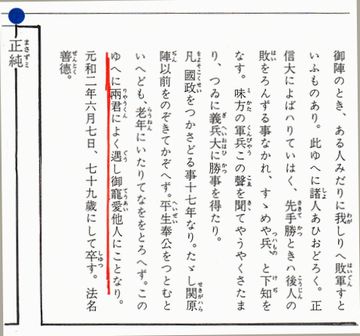 御陣のとき、ある人みだりに我しりへ敗軍すと
いふものあり。此ゆへに諸人あひおどろく。正
信大によばハりていはく、先手勝ときハ後人の
敗をろんずる事なかれ、すゝめや兵、と下知を
なす。味方の軍兵この聲を聞てやうやくさたま
り、つゐに義兵大に勝事を得たり。
凡國政をつかさどる事十七年なり。たゞし関原
陣以前をのぞきてかぞへず。平生奉公をつとむと
いへども、老年にいたりてなををとろへず。この
ゆへに兩君によく遇し御寵愛他人にことなり。
元和二年六月七日、七十九歳にして卒す。法名
善德。
正純